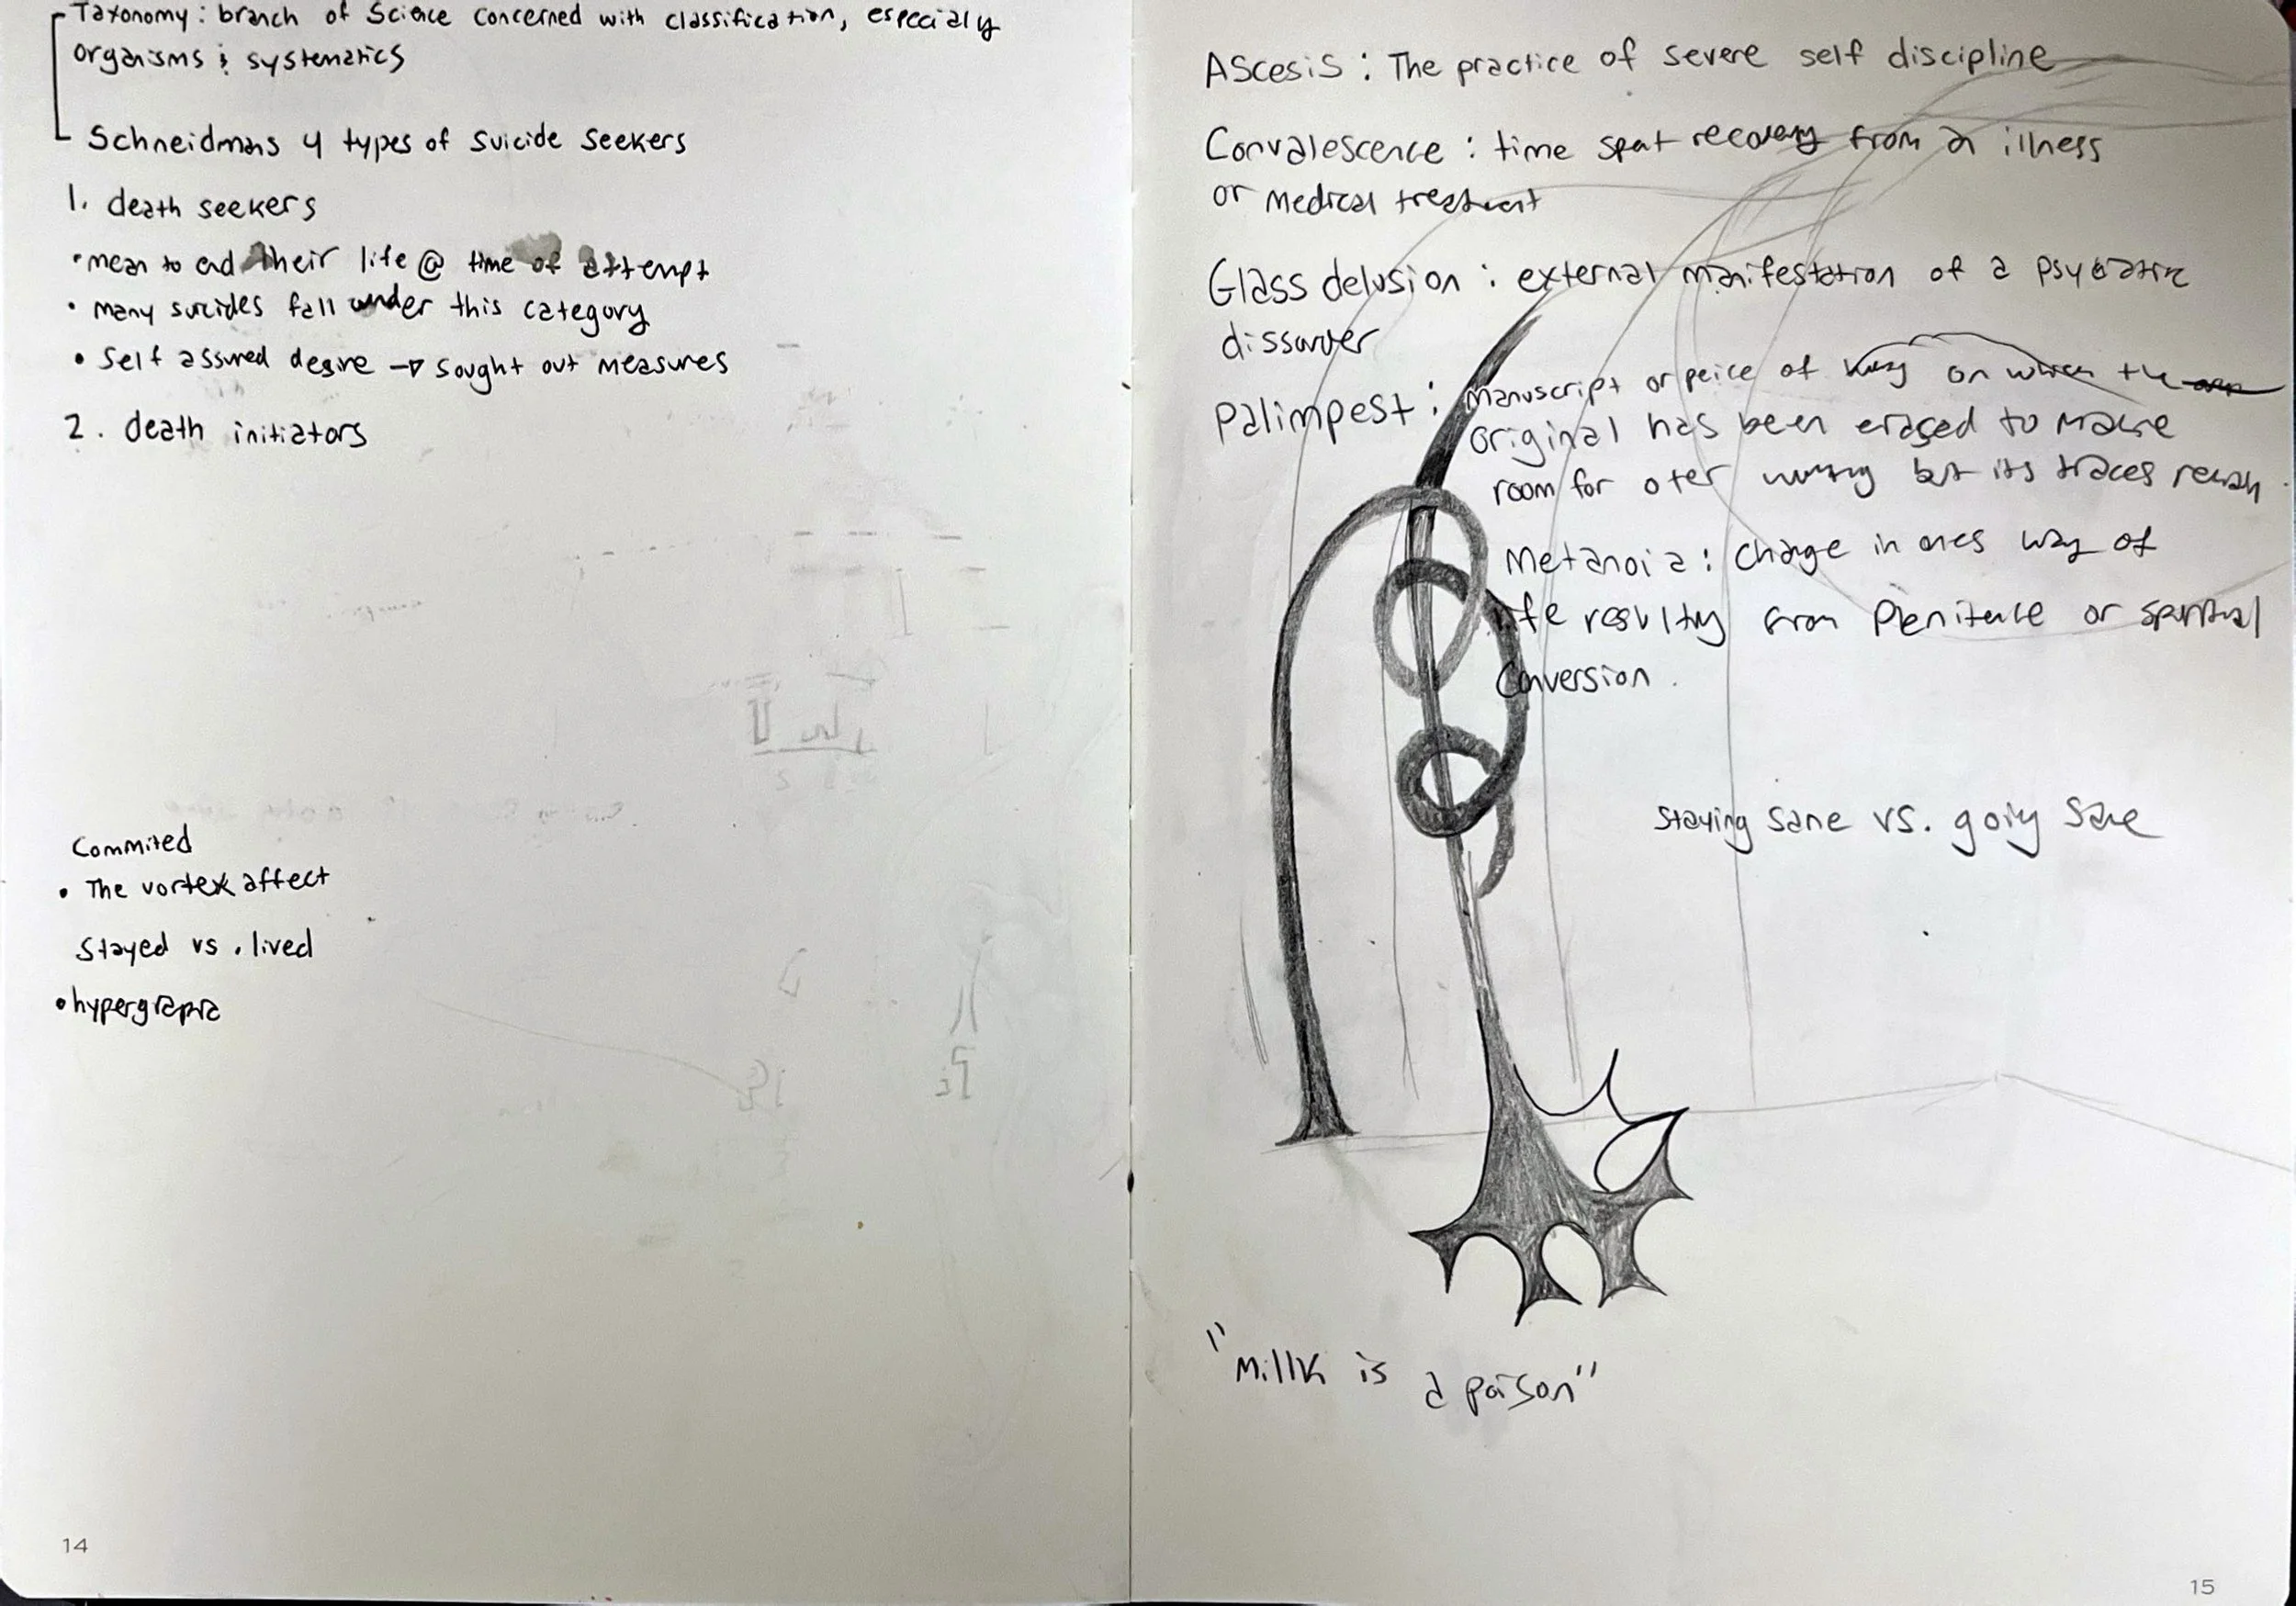 Taxonomy : branch of Science concerned with classification, especially
organisms & systematics
Schneidmans 4 types of Suicide Seekers
1. death seekers
• mean to end their life @ time of attempt
• many suicides fall under this category
• Self assured desire → sought out measures
2. death initiators
Commited
• The vortex affect
Stayed vs. lived
• hypergrapia
14
Ascesis : The practice of severe self discipline
Convalescence : time spent recovery from a illness
or medical treatment
Glass delusion : external manifestation of a psychiatric
dissorder
Palimpest : manuscript or peice of on which the
original has been erased to make
room for oter writing but its traces remain
Metanoia : Change in ones way of
life resulting from Penitence or spiritual
Conversion.
Staying sane vs. going sane
"Millk is a poison"
15